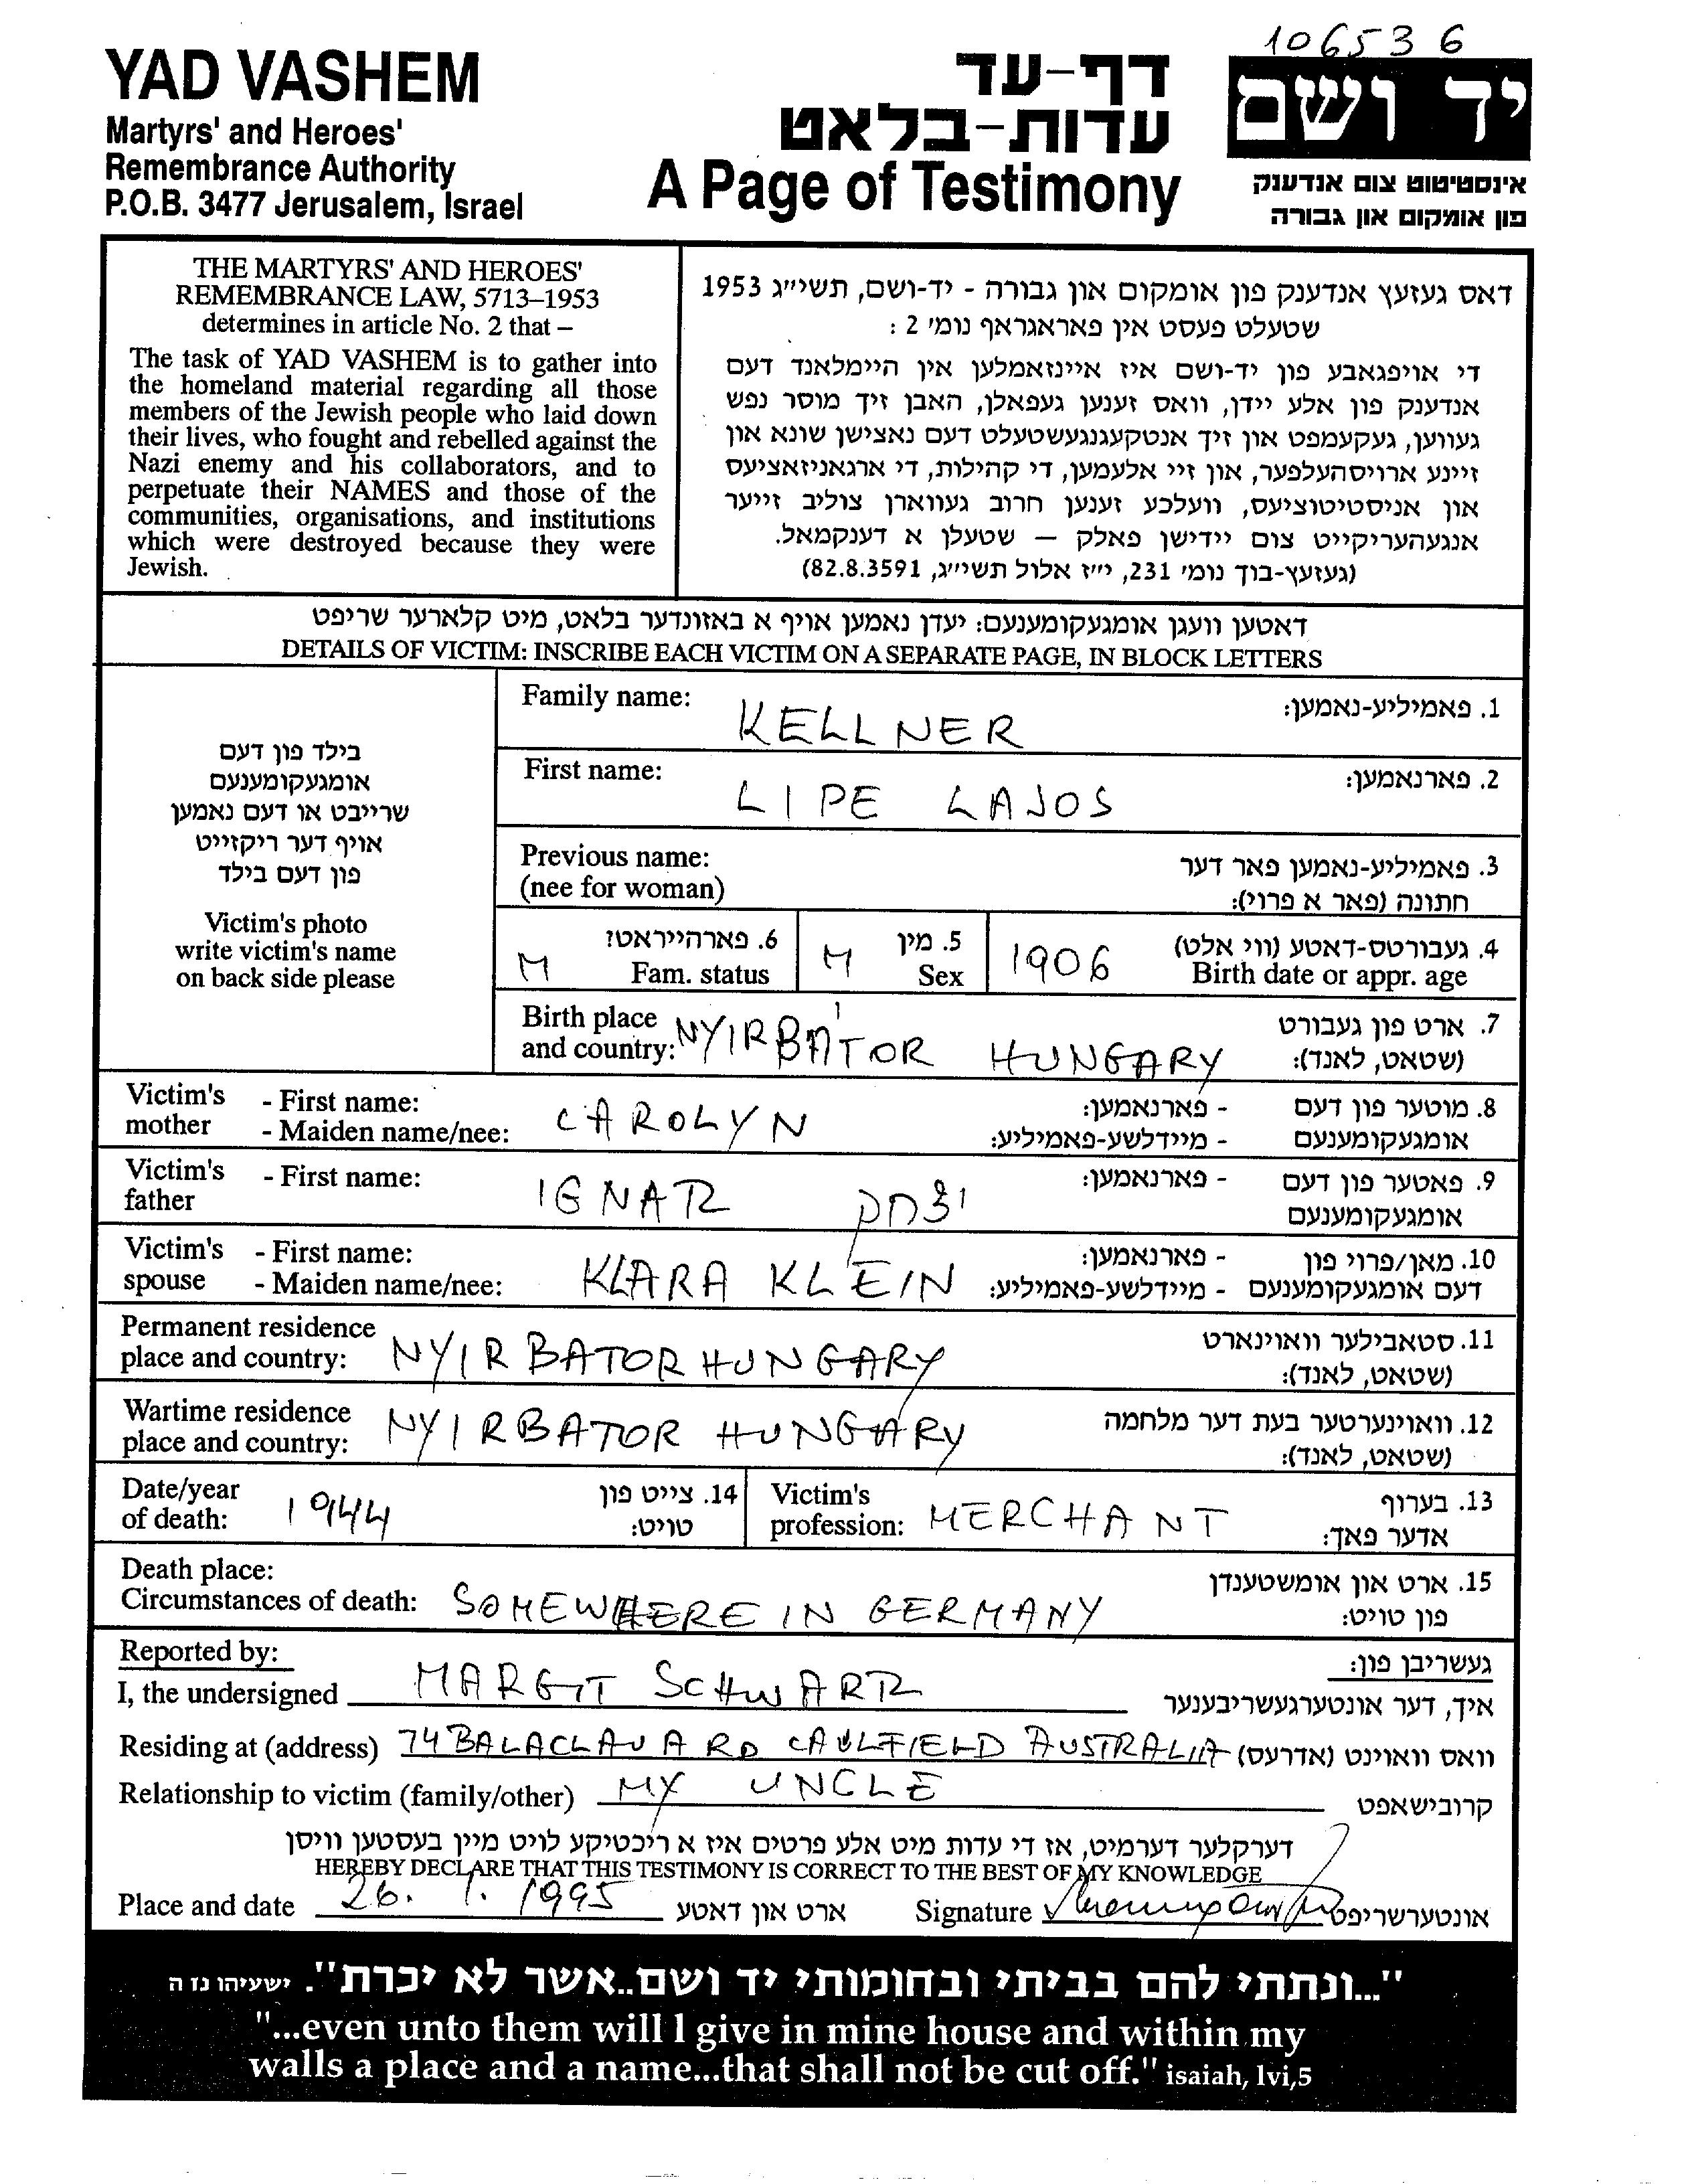 106536
YAD VASHEM
Martyrs' and Heroes'
Remembrance Authority
P.O.B. 3477 Jerusalem, Israel
דף-עד
עדות-בלאט
A Page of Testimony
יד ושם
אינסטיטוט צום אנדענק
פון אומקום און גבורה
THE MARTYRS' AND HEROES'
REMEMBRANCE LAW, 5713–1953
determines in article No. 2 that –
The task of YAD VASHEM is to gather into
the homeland material regarding all those
members of the Jewish people who laid down
their lives, who fought and rebelled against the
Nazi enemy and his collaborators, and to
perpetuate their NAMES and those of the
communities, organisations, and institutions
which were destroyed because they were
Jewish.
דאס געזעץ אנדענק פון אומקום און גבורה - יד-ושם, תשי״ג 1953
שטעלט פעסט אין פאראגראף נומ׳ 2 :
די אויפגאבע פון יד-ושם איז איינזאמלען אין היימלאנד דעם
אנדענק פון אלע יידן, וואס זענען געפאלן, האבן זיך מוסר נפש
געווען, געקעמפט און זיך אנטקעגנגעשטעלט דעם נאצישן שונא און
זיינע ארויסהעלפער, און זיי אלעמען, די קהילות, די ארגאניזאציעס
און אניסטיטוציעס, וועלכע זענען חרוב געווארן צוליב זייער
אנגעהעריקייט צום יידישן פאלק — שטעלן א דענקמאל.
(געזעץ-בוך נומ׳ 231, י״ז אלול תשי״ג, 82.8.3591)
דאטען וועגן אומגעקומענעם: יעדן נאמען אויף א באזונדער בלאט, מיט קלארער שריפט
DETAILS OF VICTIM: INSCRIBE EACH VICTIM ON A SEPARATE PAGE, IN BLOCK LETTERS
בילד פון דעם
אומגעקומענעם
שרייבט או דעם נאמען
אויף דער ריקזייט
פון דעם בילד
Victim's photo
write victim's name
on back side please
Family name: KELLNER 1. פאמיליע-נאמען:
First name: LIPE LAJOS 2. פארנאמען:
Previous name: 3. פאמיליע-נאמען פאר דער
(nee for woman) חתונה (פאר א פרוי):
M 6. פארהייראט? M 5. מין 1906 4. געבורטס-דאטע (ווי אלט)
Fam. status Sex Birth date or appr. age
Birth place NYIRBÁTOR HUNGARY 7. ארט פון געבורט
and country: (שטאט, לאנד):
Victim's - First name: CAROLYN - פארנאמען: 8. מוטער פון דעם
mother - Maiden name/nee: - מיידלשע-פאמיליע: אומגעקומענעם
Victim's - First name: IGNAZ יצחק - פארנאמען: 9. פאטער פון דעם
father אומגעקומענעם
Victim's - First name: - פארנאמען: 10. מאן/פרוי פון
spouse - Maiden name/nee: KLARA KLEIN - מיידלשע-פאמיליע: דעם אומגעקומענעם
Permanent residence 11. סטאבילער וואוינארט
place and country: NYIRBATOR HUNGARY (שטאט, לאנד):
Wartime residence 12. וואוינערטער בעת דער מלחמה
place and country: NYIRBATOR HUNGARY (שטאט, לאנד):
Date/year 14. צייט פון Victim's 13. בערוף
of death: 1944 טויט: profession: MERCHANT אדער פאך:
Death place: 15. ארט און אומשטענדן
Circumstances of death: SOMEWHERE IN GERMANY פון טויט:
Reported by: געשריבן פון:
I, the undersigned MARGIT SCHWARZ איך, דער אונטערגעשריבענער
Residing at (address) 74 BALACLAVA RD CAULFIELD AUSTRALIA וואס וואוינט (אדרעס)
Relationship to victim (family/other) MY UNCLE קרובישאפט
דערקלער דערמיט, אז די עדות מיט אלע פרטים איז א ריכטיקע לויט מיין בעסטען וויסן
HEREBY DECLARE THAT THIS TESTIMONY IS CORRECT TO THE BEST OF MY KNOWLEDGE
Place and date 26. 1. 1995 ארט און דאטע Signature אונטערשריפט
"...ונתתי להם בביתי ובחומותי יד ושם..אשר לא יכרת". ישעיהו נז ה
"...even unto them will I give in mine house and within my
walls a place and a name...that shall not be cut off." isaiah, lvi,5